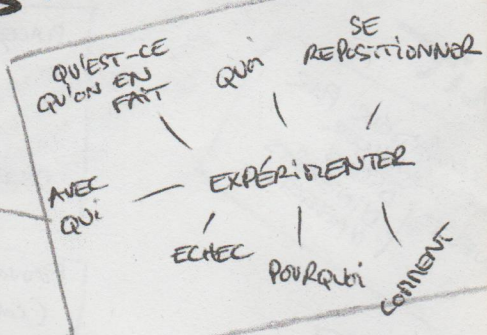 QU'EST-CE
QU'ON EN
FAIT
QUOI
SE
REPOSITIONNER
AVEC
QUI
EXPÉRIMENTER
ECHEC
POURQUOI
COMMENT